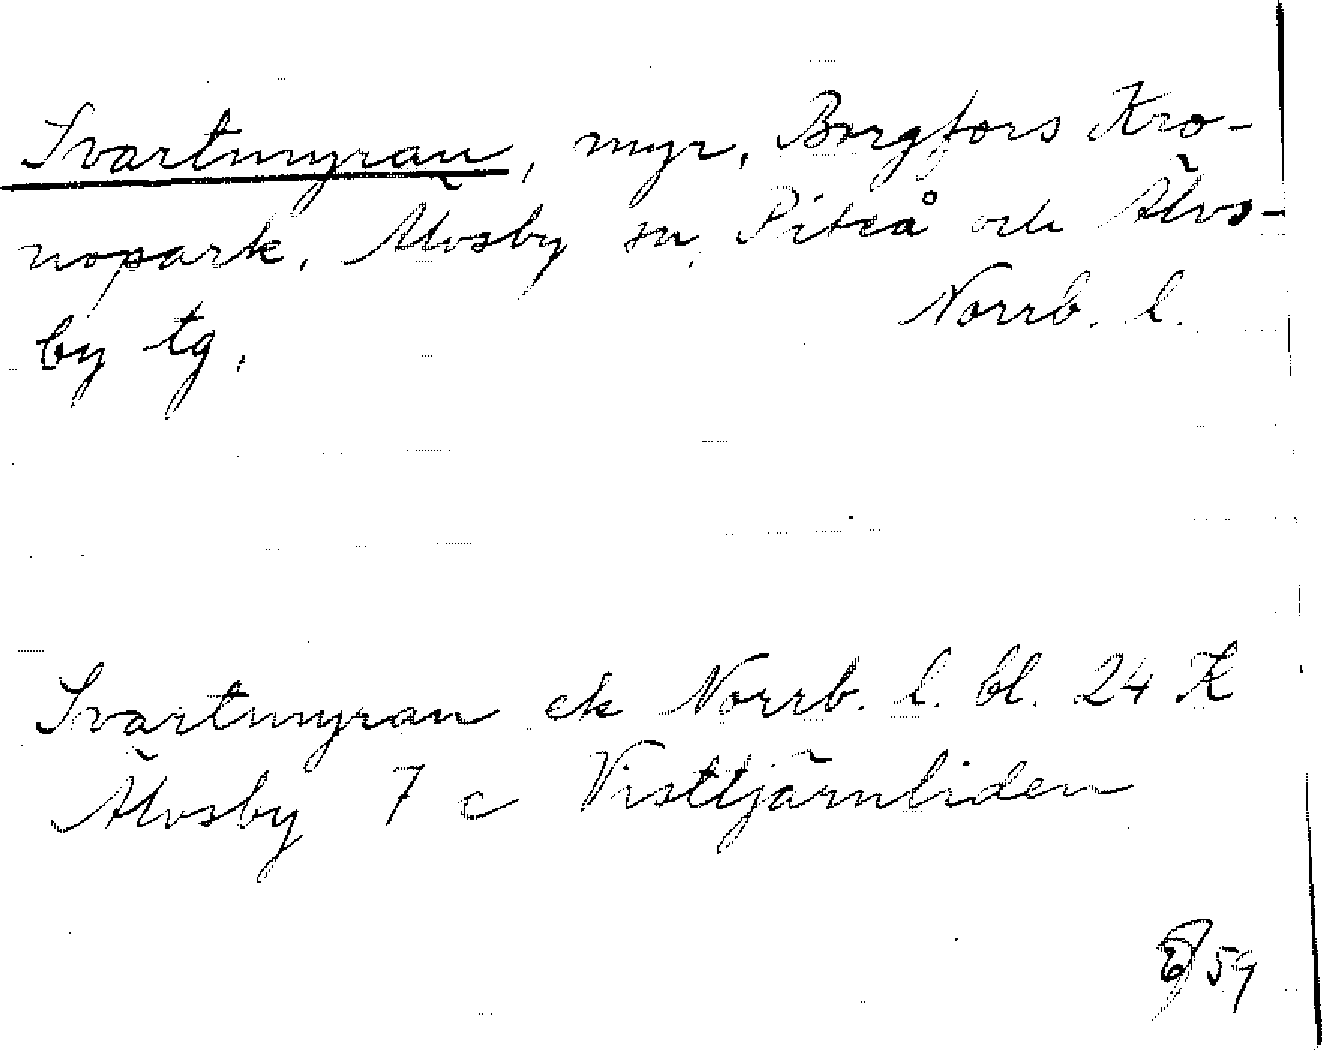 Svartmyran, myr, Borgfors Kro-
nopark, Älvsby sn, Piteå och Älvs-
by tg,
Norrb. l.
Svartmyran ek Norrb. l. bl. 24 K
Älvsby 7 c Visttjärnliden
59